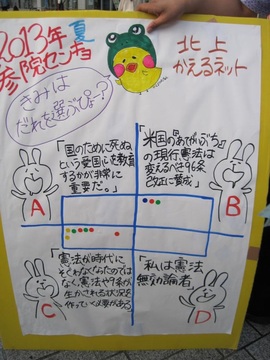 2013年夏
参院センキョ
北上
かえるネット
きみは
だれを選ぶぴょ?
「国のために死ぬ
という愛国心を教育
するかが非常に
重要だ。」
A
「米国の『あてがいぶち』
の現行憲法は
変えるべき96条
改正に賛成」
B
「憲法が時代に
そぐわなくなったのでは
なく、憲法や9条が
生かされる状況を
作っていく必要がある」
C
「私は憲法
無効論者」
D